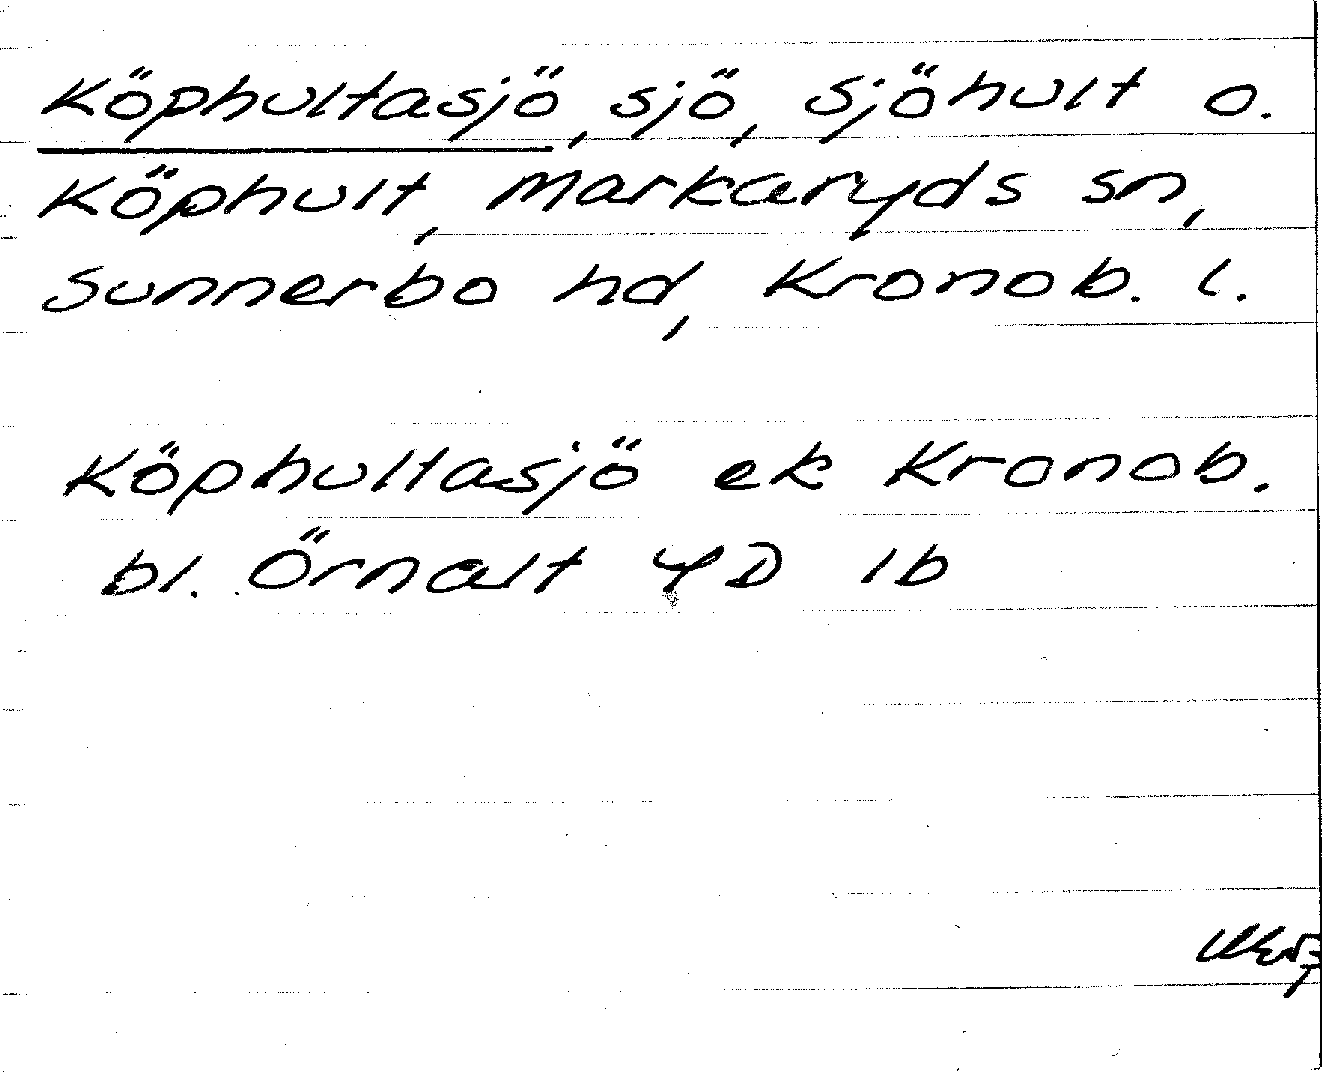 Köphultasjö, sjö, Sjöhult o.
Köphult, Markaryds sn,
Sunnerbo hd, Kronob. l.
Köphultasjö ek Kronob.
bl. Örnalt 4D 1b